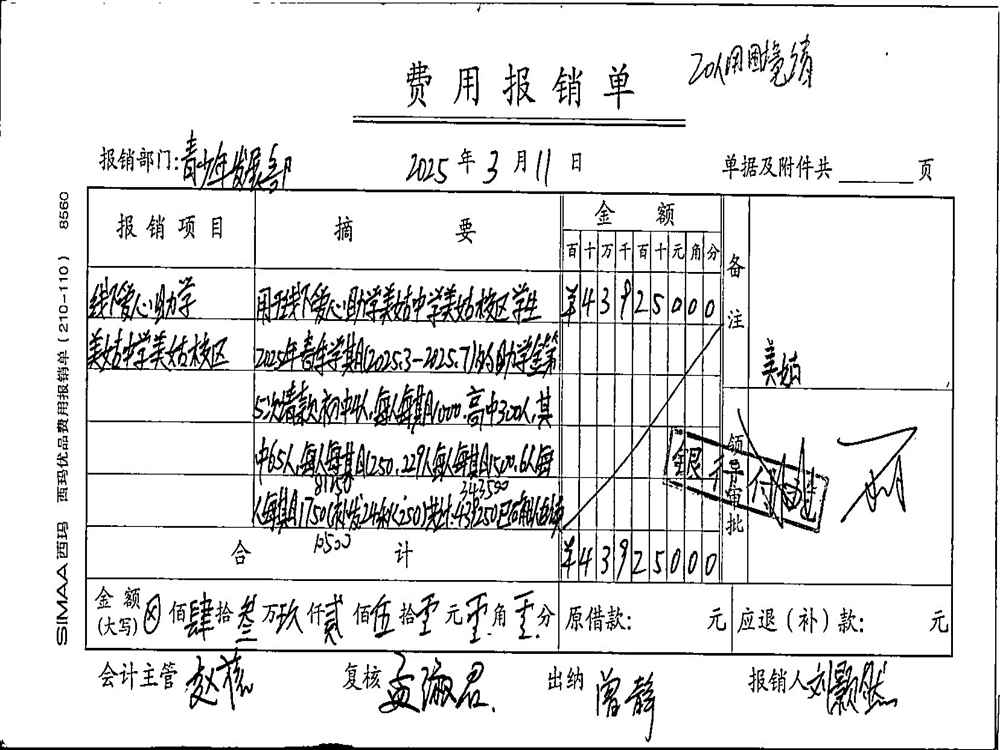 费用报销单
报销部门:青少年发展部 2025年3月11日 单据及附件共 页
报销项目 摘要 金额 备注
百十万千百十元角分
线下爱心助学 用于线下爱心助学美姑中学美姑校区学生 ¥43925000
美姑中学美姑校区 2025年春季学期(2025.3-2025.7)的助学金第 美姑
5次请款.初中4人.每人每期1000.高中300人.其
中65人.每人每期1250.229人每人每期1500.6人每
81250 343500
人每期1750 439250
10500
银行付讫
领导审批
合计 ¥43925000
金额(大写)ⓧ佰肆拾叁万玖仟贰佰伍拾零元零角零分 原借款: 元 应退(补)款: 元
会计主管 赵 复核 孟淑君 出纳 曾静 报销人 刘颢然
SIMAA 西玛 西玛优品费用报销单(210-110) 8560